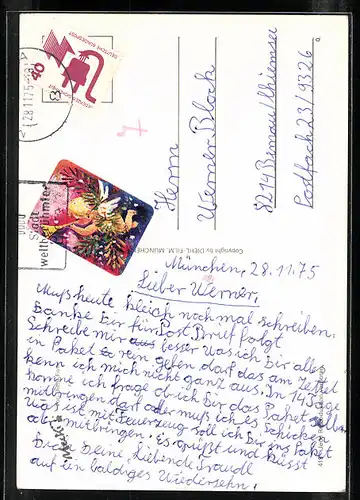 DEUTSCHE BUNDESPOST
40
28.11.75
Herrn
Werner Block
8214 Bernau/Chiemsee
Postfach 23/9326
Copyright by DIEHL-FILM, MÜNCHEN
Stadt
weltberühmter
München, 28.11.75
Lieber Werner,
Muß heute gleich noch mal schreiben.
Danke Dir für Post Brief folgt
Schreibe mir aus besser was ich Dir alles
in Paket rein geben darf das am Zettel
kenn ich mich nicht ganz aus. In 14 Tage
komme ich frage ob ich Dir das Paket selber
mitbringen darf oder muß ich es schicken.
Was ist mit Feuerzeug soll ich Dir ins Paket
oder mitbringen. Es grüßt und küsst
Dich Deine Liebende Traudl
auf ein baldiges Wiedersehn!